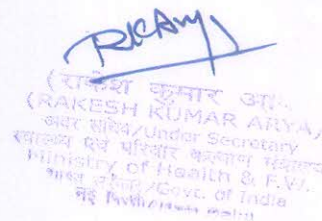 RKArya
(राकेश कुमार
(RAKESH KUMAR ARYA)
अवर सचिव/Under Secretary
स्वास्थ्य एवं परिवार कल्याण मंत्रालय
Ministry of Health & F.W.
भारत सरकार/Govt. of India
नई